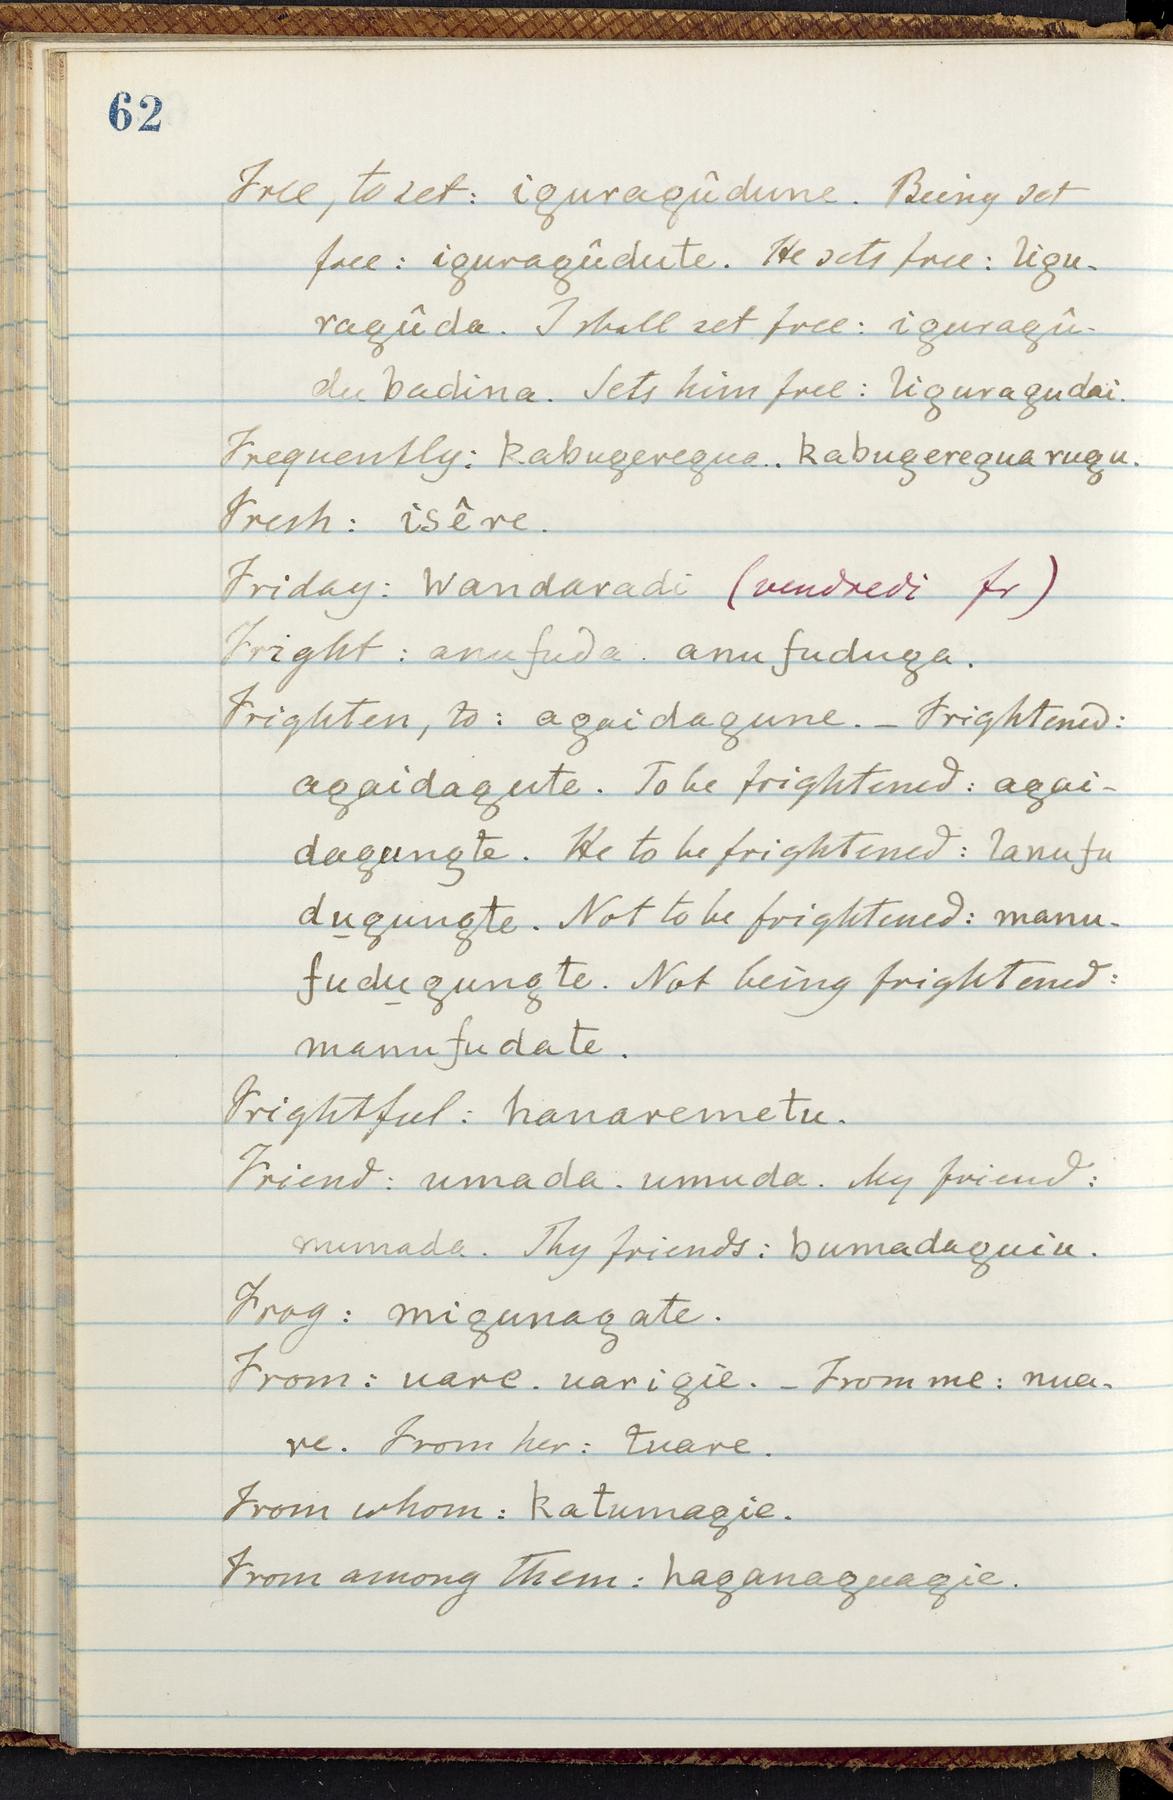 62
Free, to set: iguragûdune. Being set
free: iguragûdute. He sets free: ligu-
ragûda. I shall set free: iguragû-
du badina. Sets him free: liguragudai.
Frequently: kabugeregua.. kabugereguarugu.
Fresh: isêre.
Friday: Wandaradi (vendredi fr)
Fright: anufuda. anufuduga.
Frighten, to: agaidagune. — Frightened:
agaidagute. To be frightened: agai-
dagungte. He to be frightened: lanufu
dugungte. Not to be frightened: manu-
fudugungte. Not being frightened:
manufudate.
Frightful: hanaremetu.
Friend: umada. umuda. My friend:
numada. Thy friends: bumadaguiu.
Frog: migunagate.
From: uare. uarigie. — From me: nua-
re. From her: tuare.
From whom: katumagie.
From among them: haganaguagie.